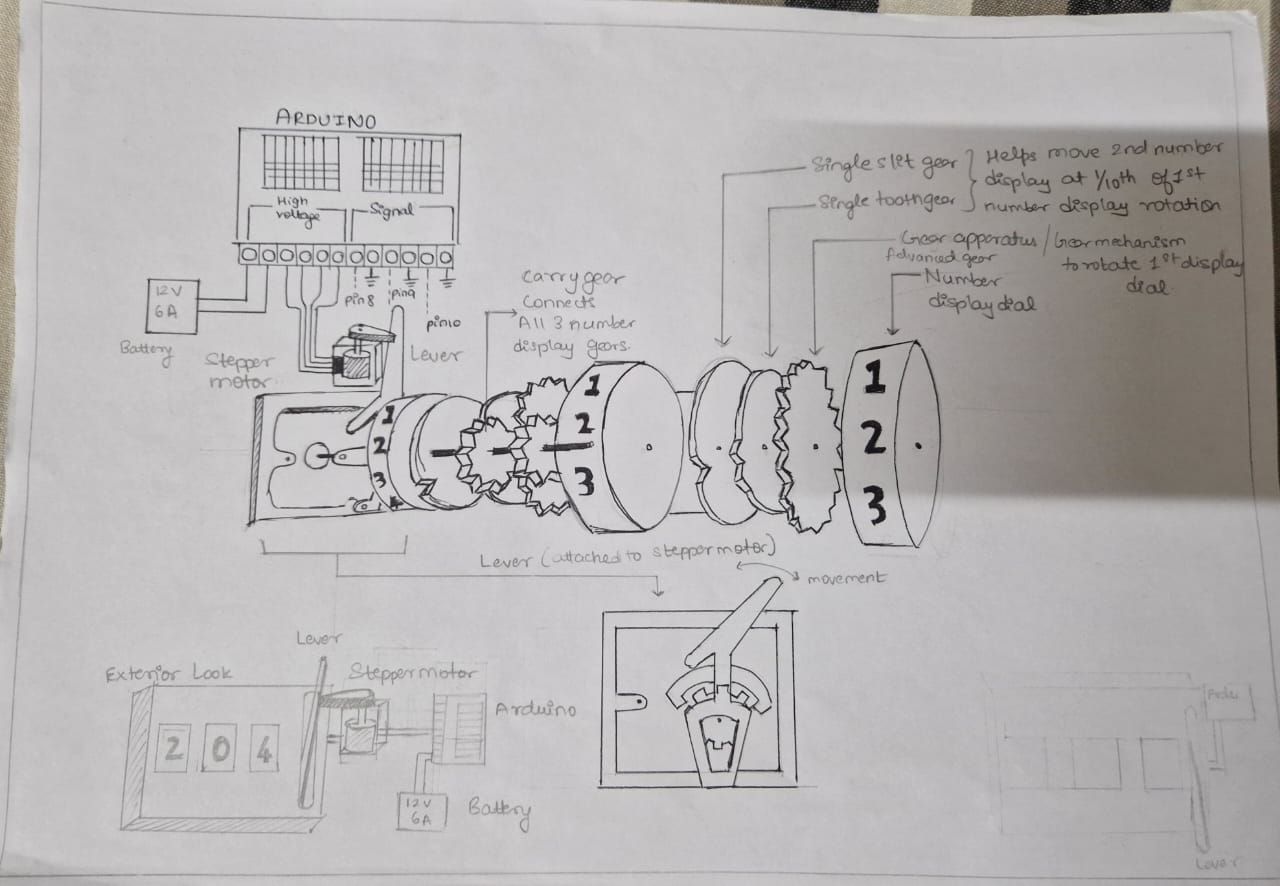 ARDUINO
High
voltage
Signal
12V
6A
Battery
Pin8
Pin9
pin10
Stepper
motor
Lever
Carry gear
Connects
All 3 number
display gears.
Single slit gear
Single tooth gear
Helps move 2nd number
display at 1/10th of 1st
number display rotation
Gear apparatus / Gear mechanism
Advanced gear
to rotate 1st display
dial
Number
display dial
1
2
3
1
2
3
1
2
3
Lever (attached to stepper motor)
movement
Exterior Look
Lever
Stepper motor
Arduino
2 0 4
12V
6A
Battery
Lever